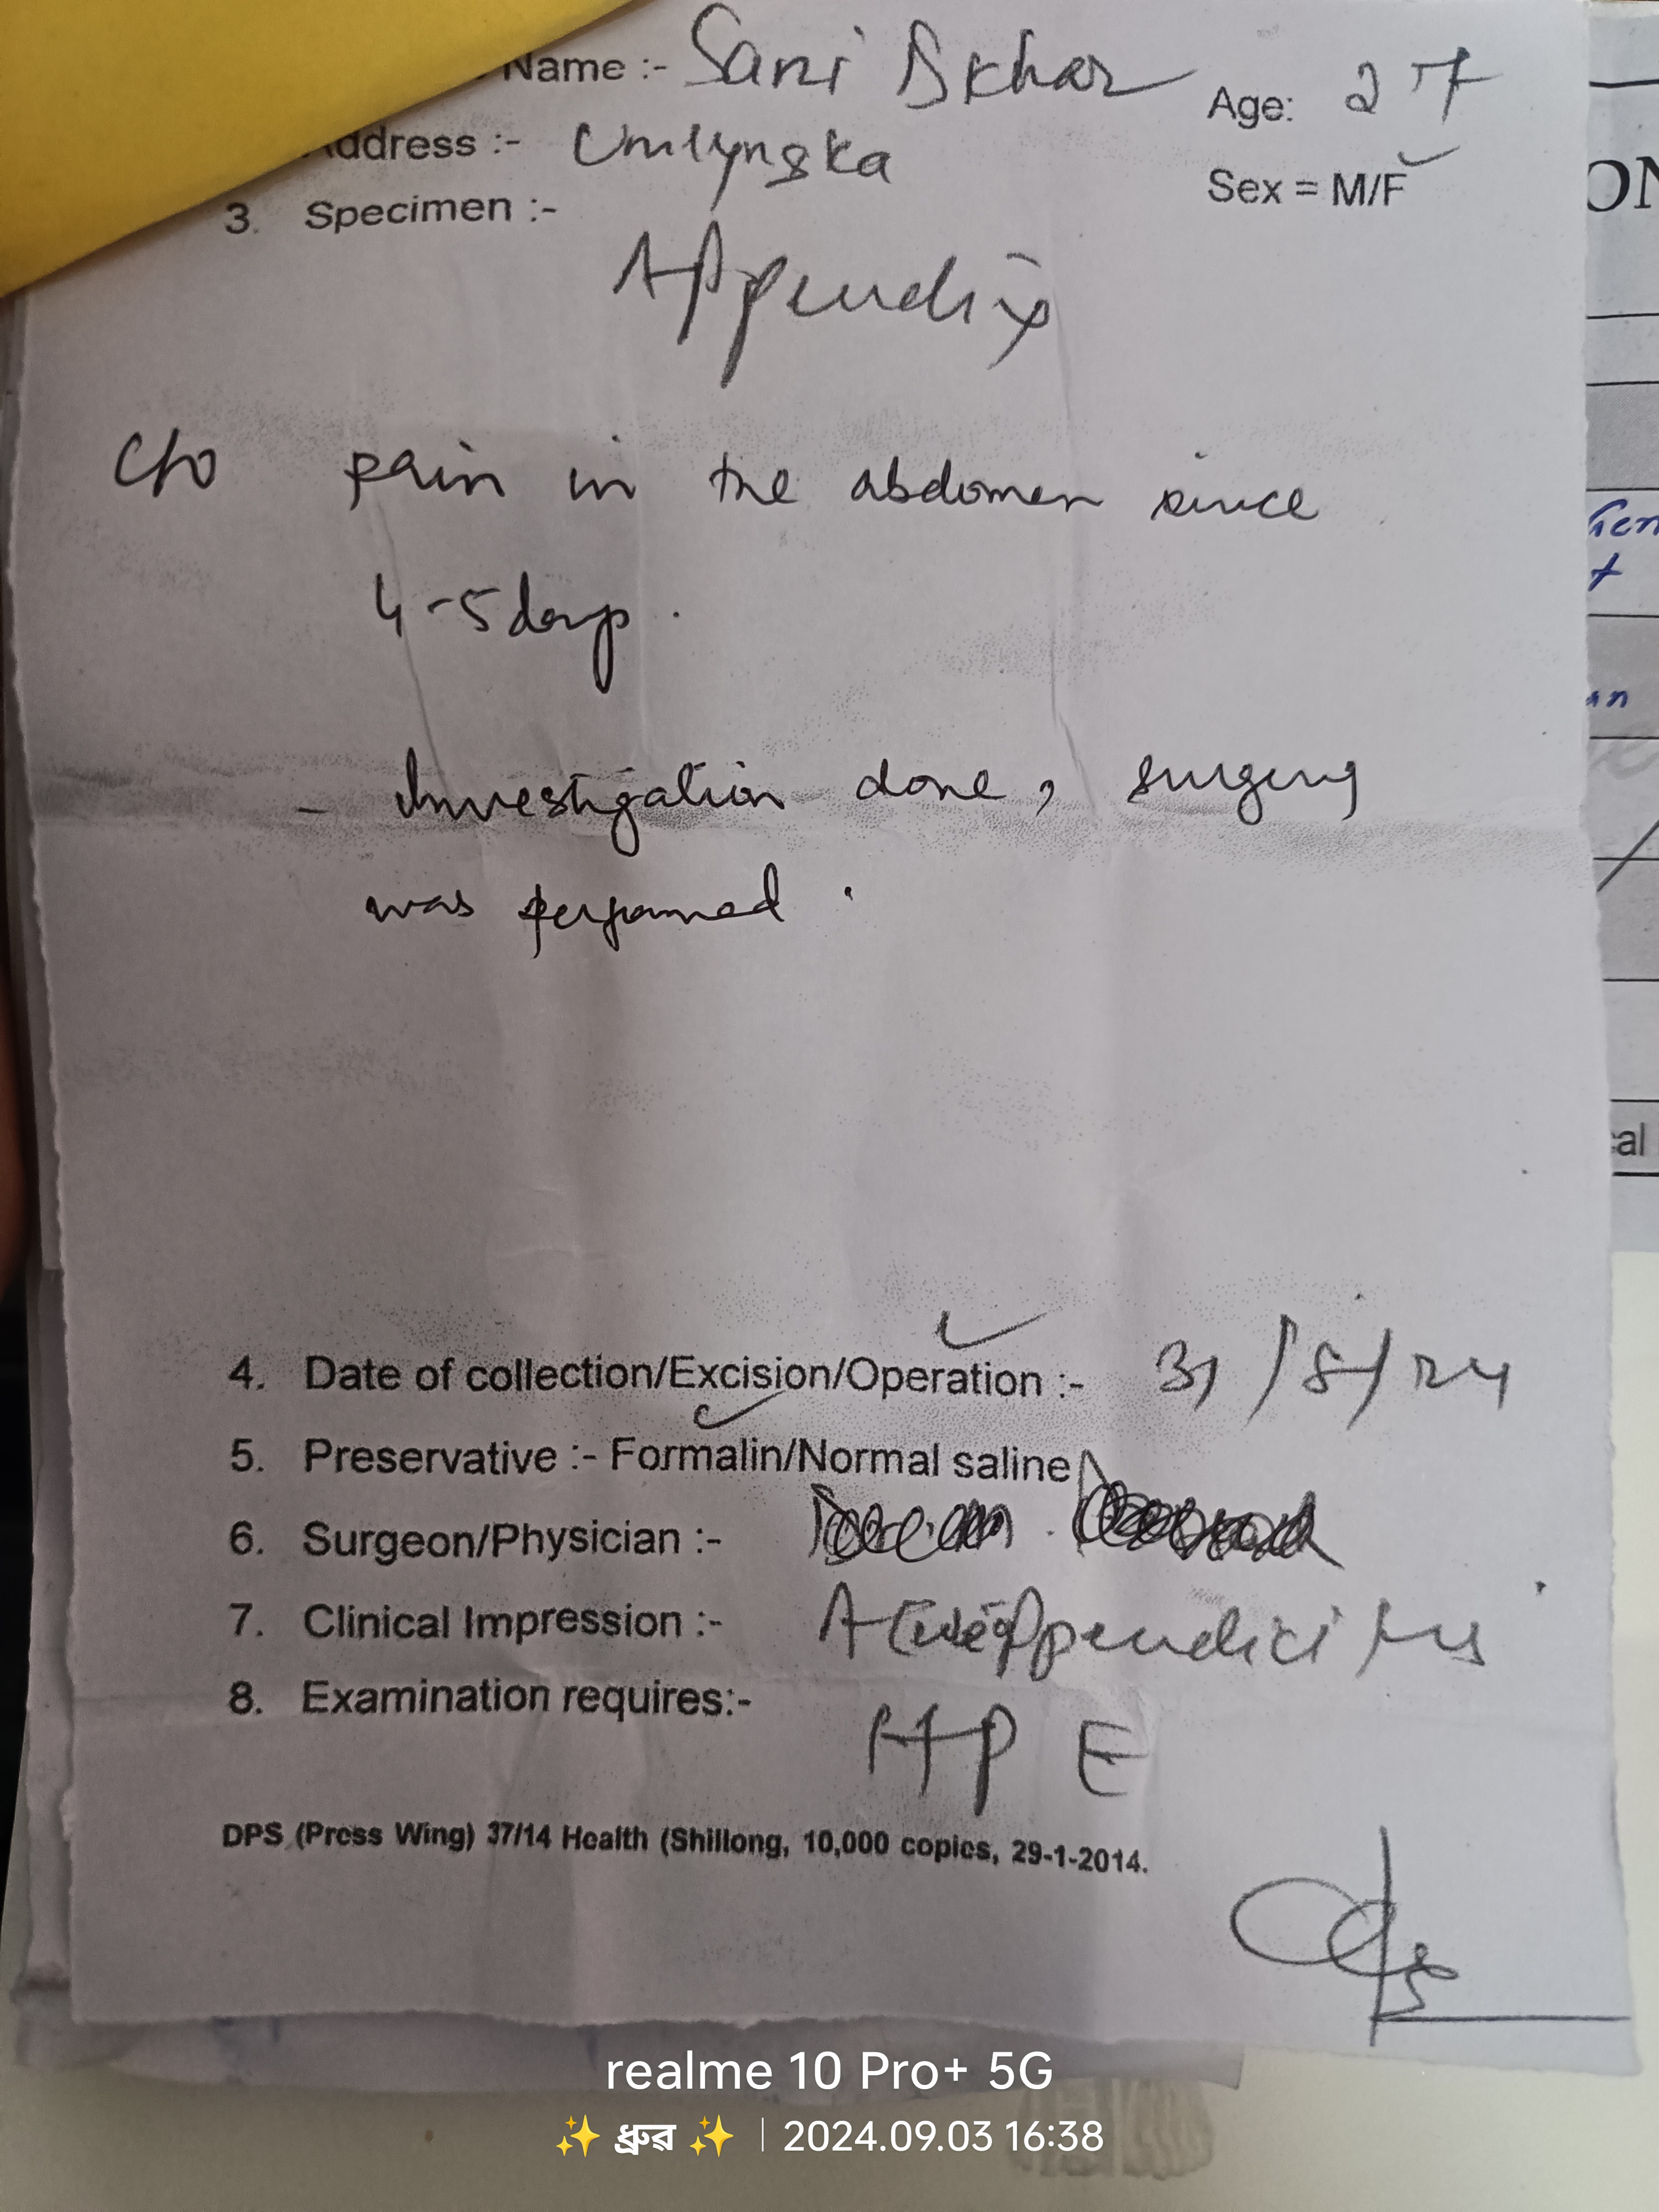 Name :- Sani Dkhar
Age: 27
Address :- Umlyngka
Sex = M/F
3. Specimen :-
Appendix
C/o pain in the abdomen since
4-5 days.
- Investigation done, surgery
was performed.
4. Date of collection/Excision/Operation :- 31/8/24
5. Preservative :- Formalin/Normal saline
6. Surgeon/Physician :-
7. Clinical Impression :- Acute appendicitis
8. Examination requires:-
HPE
DPS (Press Wing) 37/14 Health (Shillong, 10,000 copies, 29-1-2014.
realme 10 Pro+ 5G
✨ ধ্রুৱ ✨ | 2024.09.03 16:38